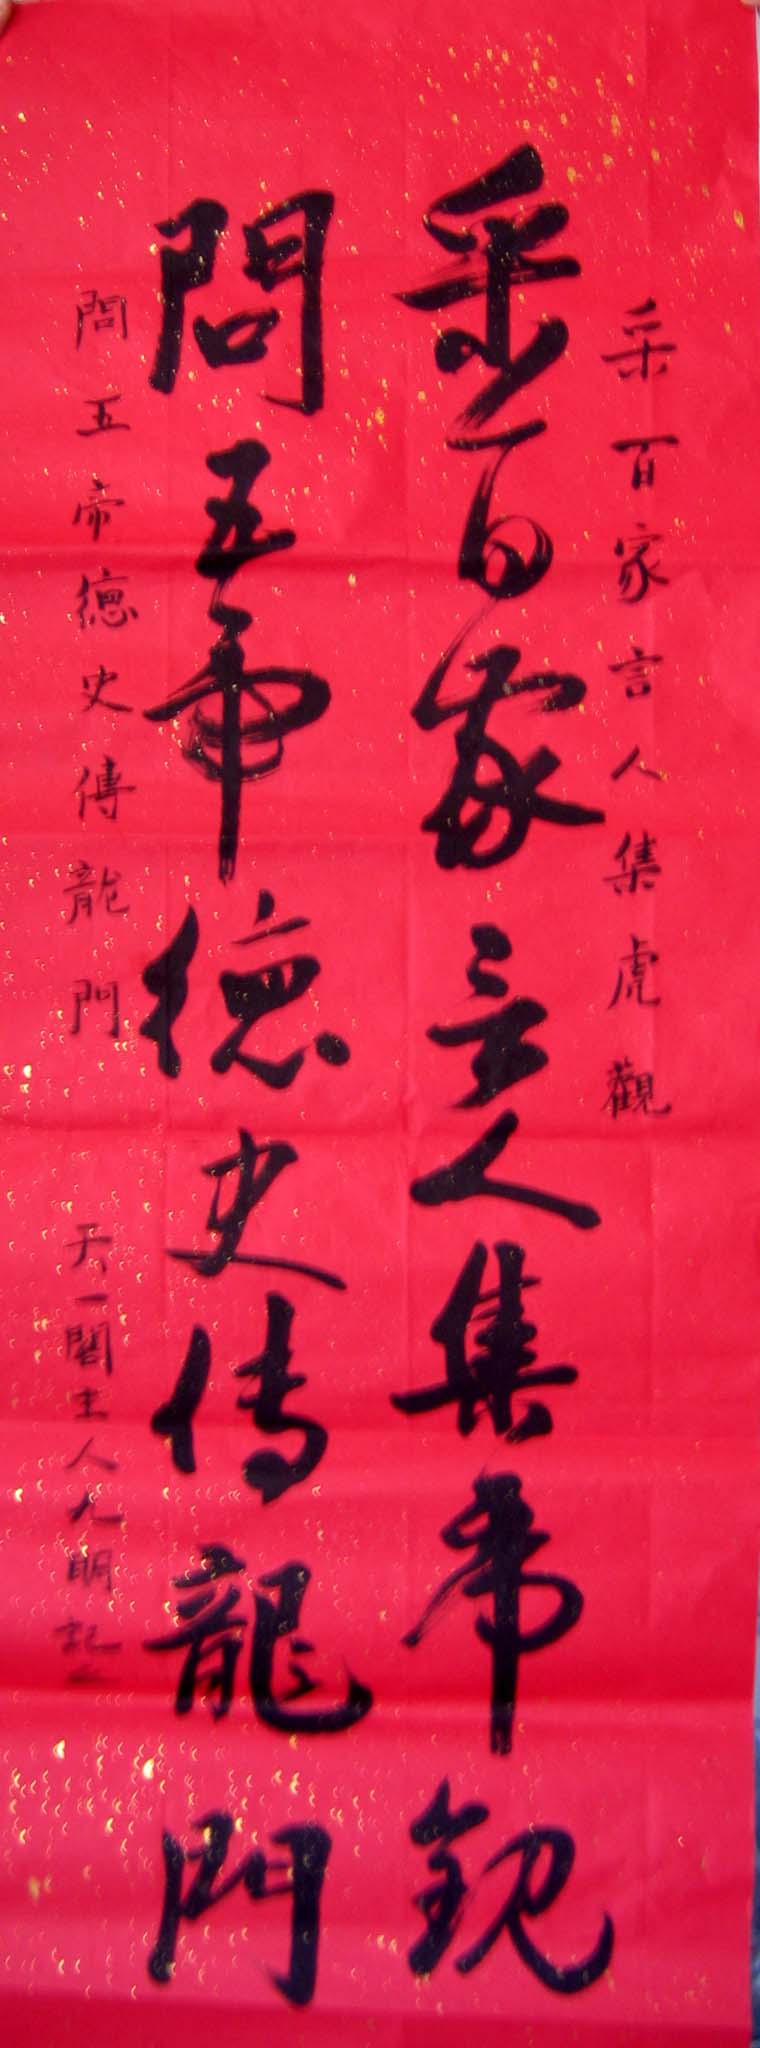 采百家言人集虎觀
采百家言人集虎觀
問五帝德史傳龍門
問五帝德史傳龍門 天一閣主人九明記之